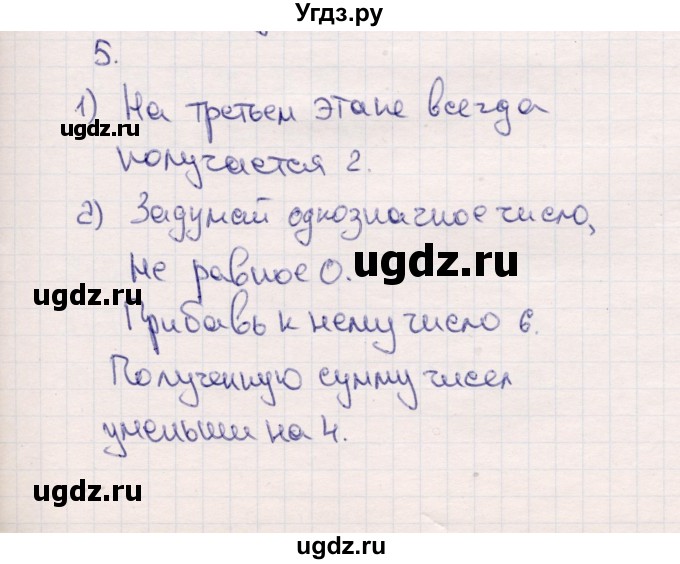 Угдз.ру
5.
1) На третьем этапе всегда
ugdz.ru
получается 2.
2) Задумай однозначное число,
не равное 0. ugdz.ru
ugdz.ru
Прибавь к нему число 6.
Полученную сумму чисел
уменьши на 4.
ugdz.ru
ugdz.ru